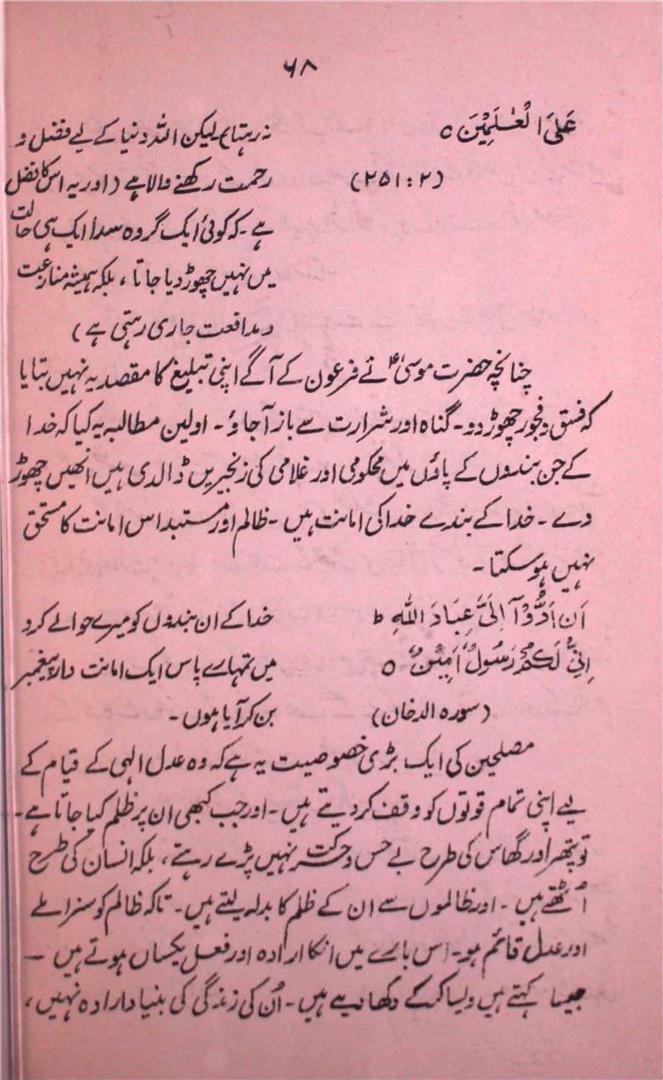 ۶۸
عَلَى الْعٰلَمِيْنَ ○
(۲ : ۲۵۱)
نہ رہتا) لیکن اللہ دنیا کے لیے فضل و
رحمت رکھنے والا ہے (اور یہ اس کا فضل
ہے۔ کہ کوئی ایک گروہ سدا ایک ہی حالت
میں نہیں چھوڑ دیا جاتا، بلکہ ہمیشہ منازعت
و مدافعت جاری رہتی ہے)
چنانچہ حضرت موسیٰؑ نے فرعون کے آگے اپنی تبلیغ کا مقصد یہ نہیں بتایا
کہ فسق و فجور چھوڑ دو۔ گناہ اور شرارت سے باز آجاؤ۔ اولین مطالبہ یہ کیا کہ خدا
کے جن بندوں کے پاؤں میں محکومی اور غلامی کی زنجیریں ڈالدی ہیں انھیں چھوڑ
دے۔ خدا کے بندے خدا کی امانت ہیں۔ ظالم اور مستبد اس امانت کا مستحق
نہیں ہو سکتا۔
اَنْ اَدُّوْۤا اِلَىَّ عِبَادَ اللّٰهِ ط
اِنِّىْ لَكُمْ رَسُوْلٌ اَمِيْنٌ ○
(سورہ الدخان)
خدا کے ان بندوں کو میرے حوالے کر دو
میں تمہارے پاس ایک امانت دار پیغمبر
بن کر آیا ہوں۔
مصلحین کی ایک بڑی خصوصیت یہ ہے کہ وہ عدل الٰہی کے قیام کے
لیے اپنی تمام قوتوں کو وقف کر دیتے ہیں۔ اور جب کبھی ان پر ظلم کیا جاتا ہے۔
تو پتھر اور گھاس کی طرح بے حس و حرکت نہیں پڑے رہتے، بلکہ انسان کی طرح
اُٹھتے ہیں۔ اور ظالموں سے ان کے ظلم کا بدلہ لیتے ہیں۔ تاکہ ظالم کو سزا ملے
اور عدل قائم ہو۔ اس بارے میں انکا ارادہ اور فعل یکساں ہوتے ہیں۔
جیسا کہتے ہیں ویسا کر کے دکھا دیتے ہیں۔ اُن کی زندگی کی بنیاد ارادہ نہیں،